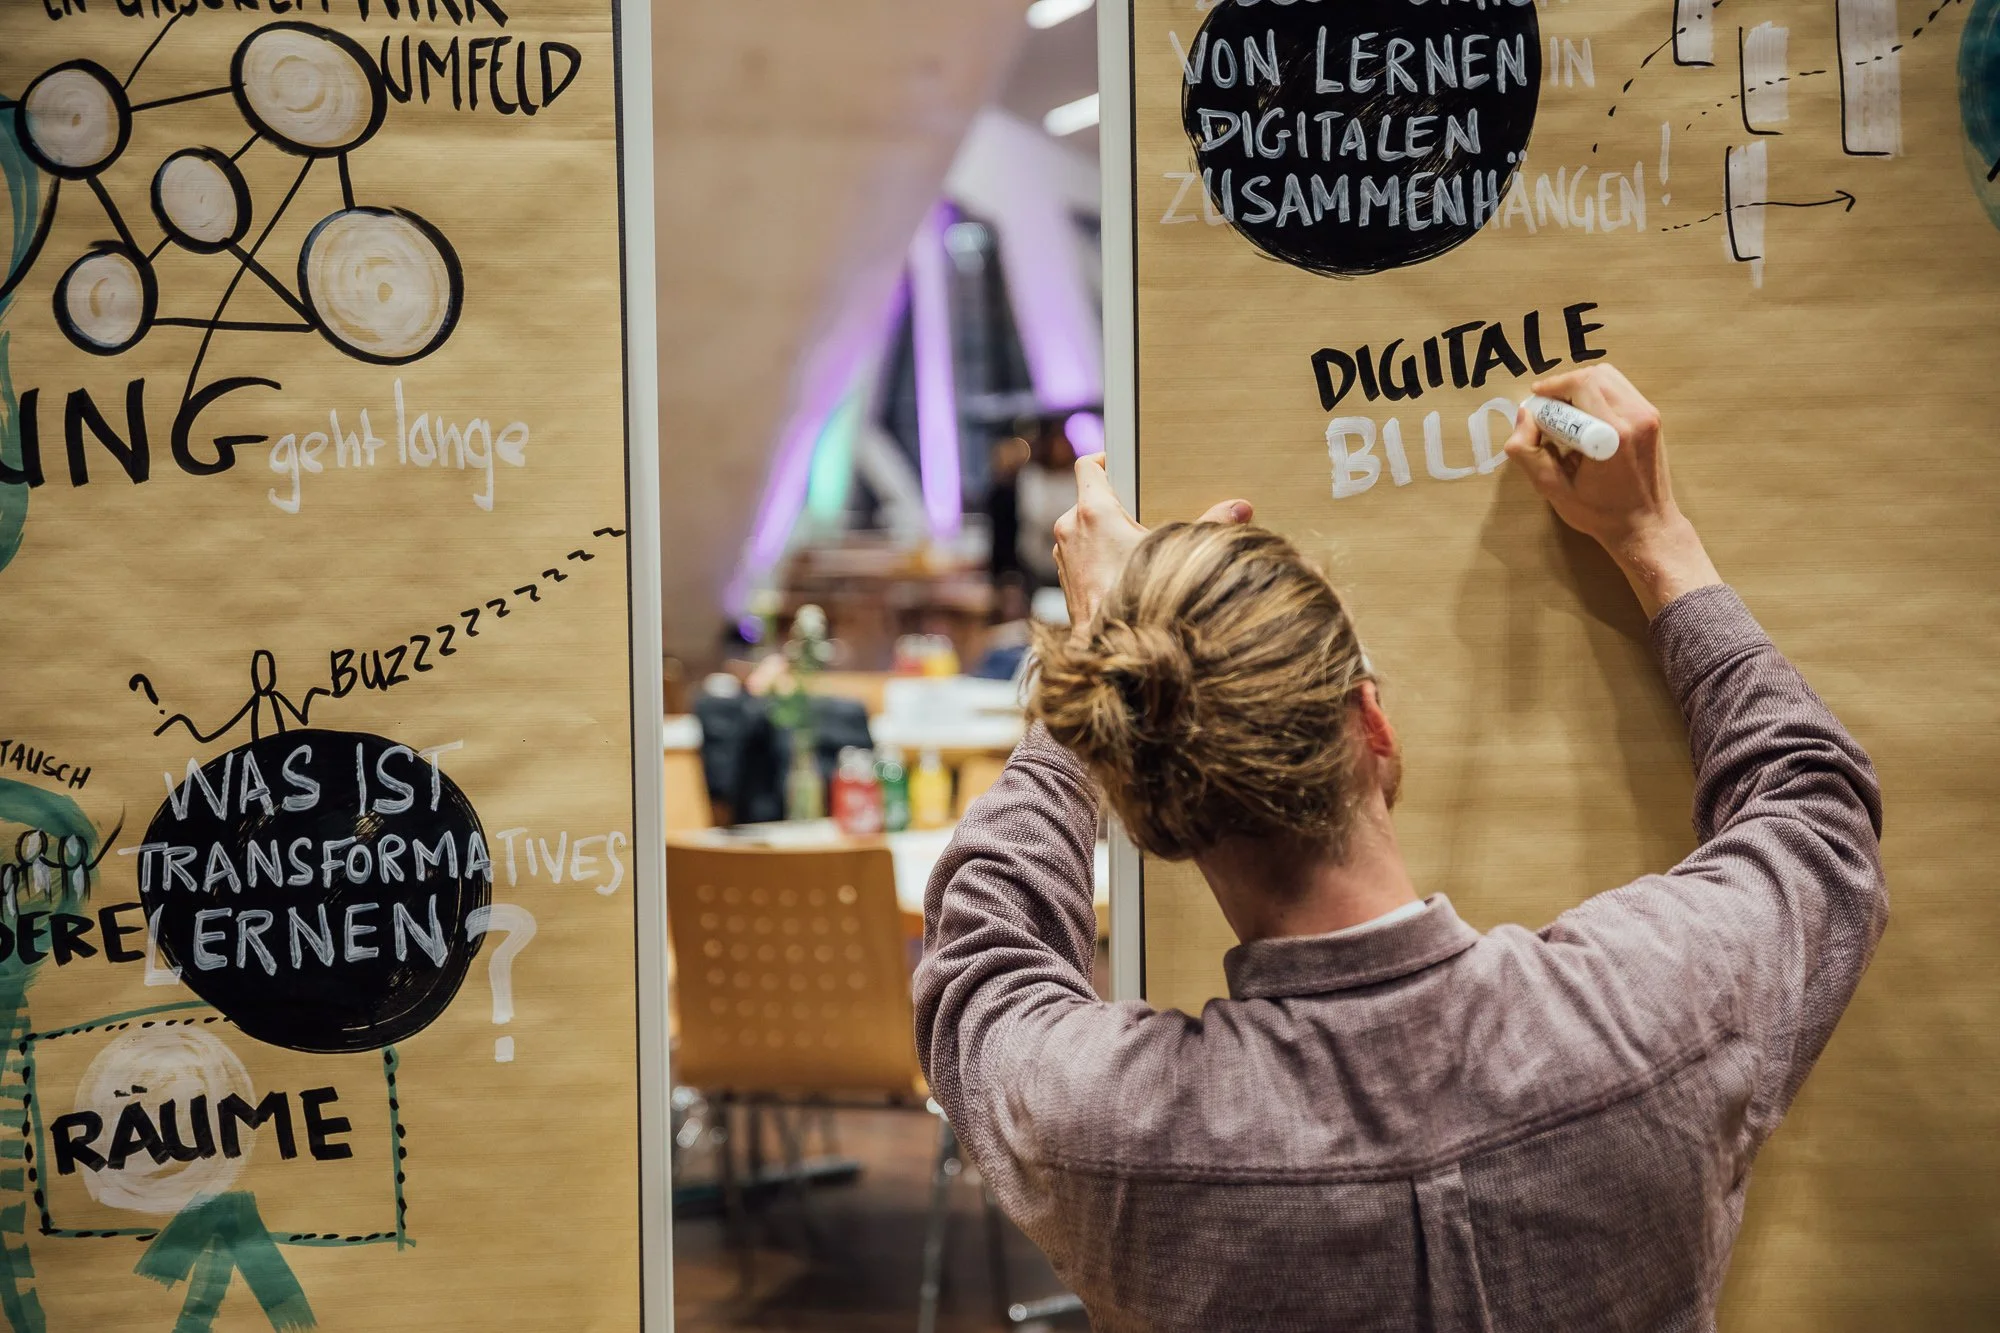 UMFELD
UNG geht lange
?
BUZZZZZZZZZZZ
TAUSCH
WAS IST
TRANSFORMATIVES
LERNEN?
RÄUME
VON LERNEN IN
DIGITALEN
ZUSAMMENHÄNGEN!
DIGITALE
BILD